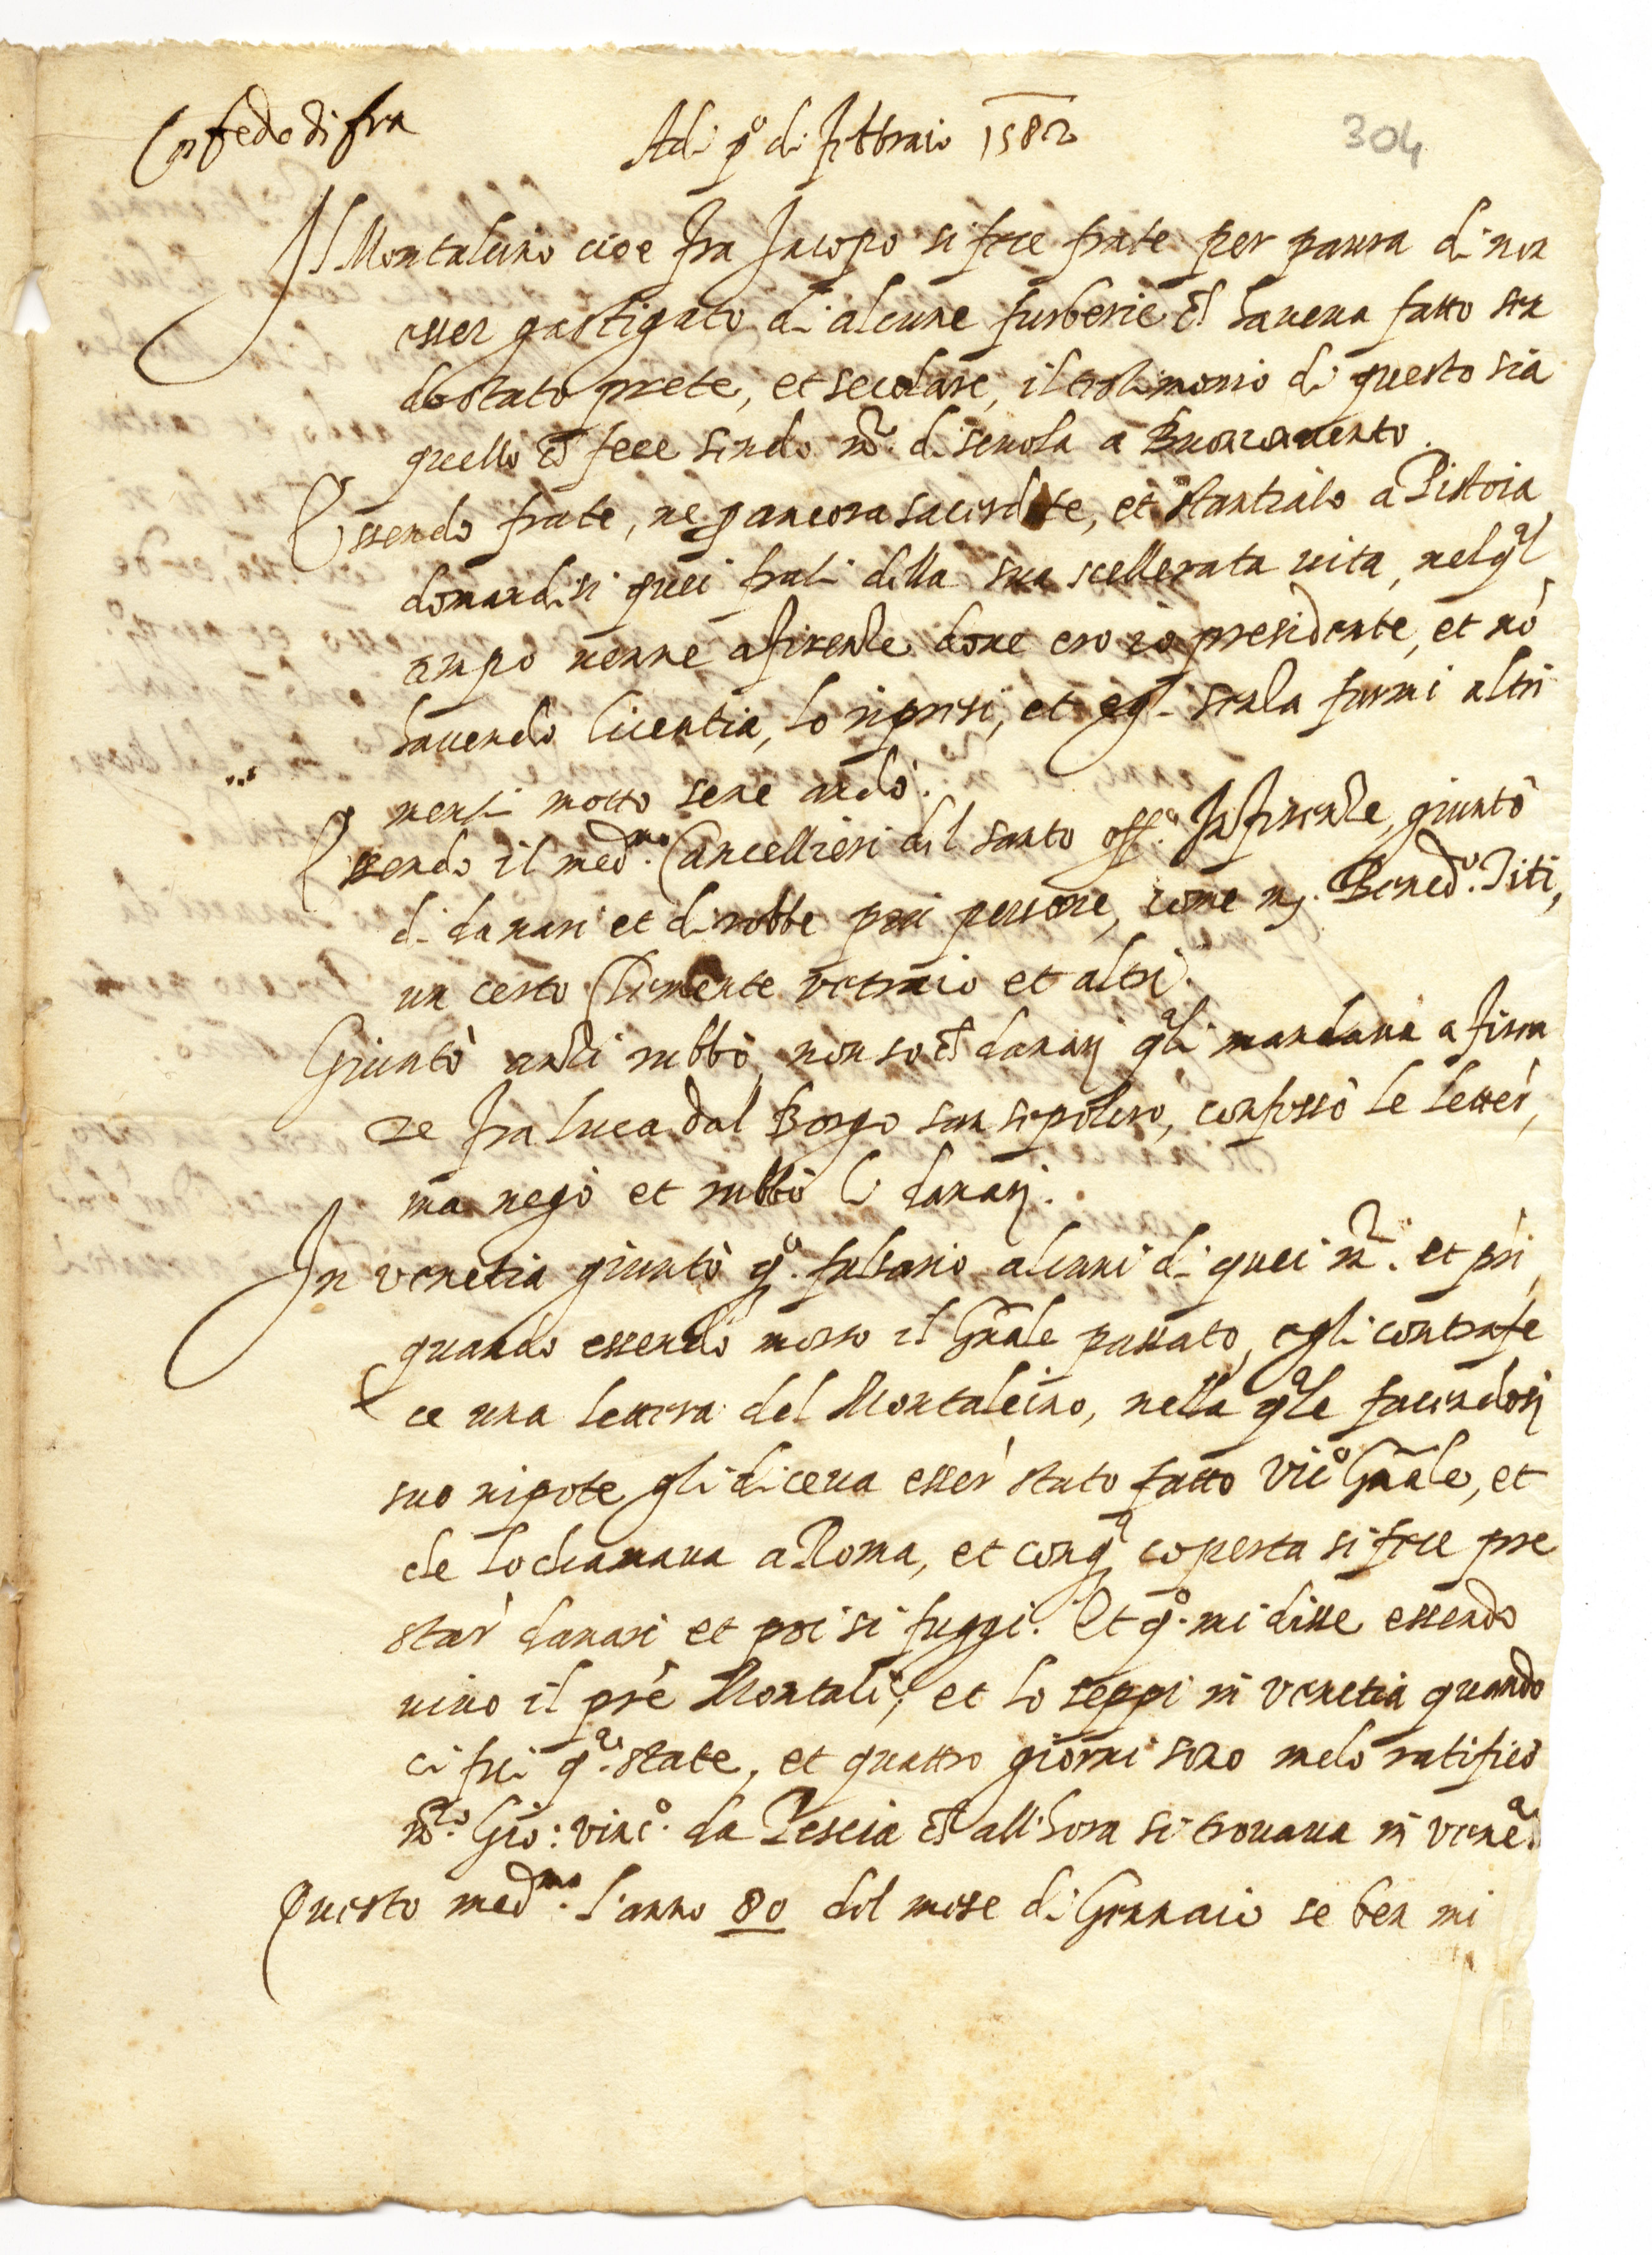 Con fede di fra
Adi p.º di febbraio 1582
304
Il Montalcino cioe fra Jacopo si fece frate per paura di non
esser gastigato di alcune furberie ch haueua fatto
stato prete, et secolare, il testimonio di questo sia
quello ch fece sendo m.º di scuola a Buonconuento.
Essendo frate, ne ancora sacerdote, et a Pistoia
domandisi quei frati della sua scellerata uita, nel ql
tempo uenne a firenze doue ero io presidente, et nõ
hauendo licentia, lo ripresi, et egli senza farmi altri
menti motto sene andò.
Essendo il med.mo Cancellieri del santo off.º In firenze, giuntò
di danari et di robbe piu persone, come m. Bened.º Titi,
un certo Clemente vetraio et altri.
Giuntò anzi rubbò non so ch danarj qli mandaua a firen
ze fra Luca dal Borgo san sepolcro, confessò le letter,
ma negò et rubbò li danarj.
In venetia giuntò q.º falsario alcuni di quei m.ri et pri,
quando essendo morto il Gnãle passato, egli contrafe
ce una lettera del Montalcino, nella qle facendosj
suo nipote gli diceua esser stato fatto Vic.º Gnãle, et
che lo chiamaua a Roma, et con qa coperta si fece pre
star danari et poi si fuggi. Et q.º mi disse essendo
uiuo il prẽ Montalc.º, et lo seppi in venetia quando
ci fui q.a state, et quattro giorni sono melo ratificò
m.ro Gio: vinc.º da Pescia ch all'hora si trouaua in vene.a
Questo med.mo l'anno 80 del mese di Gennaio se ben mi